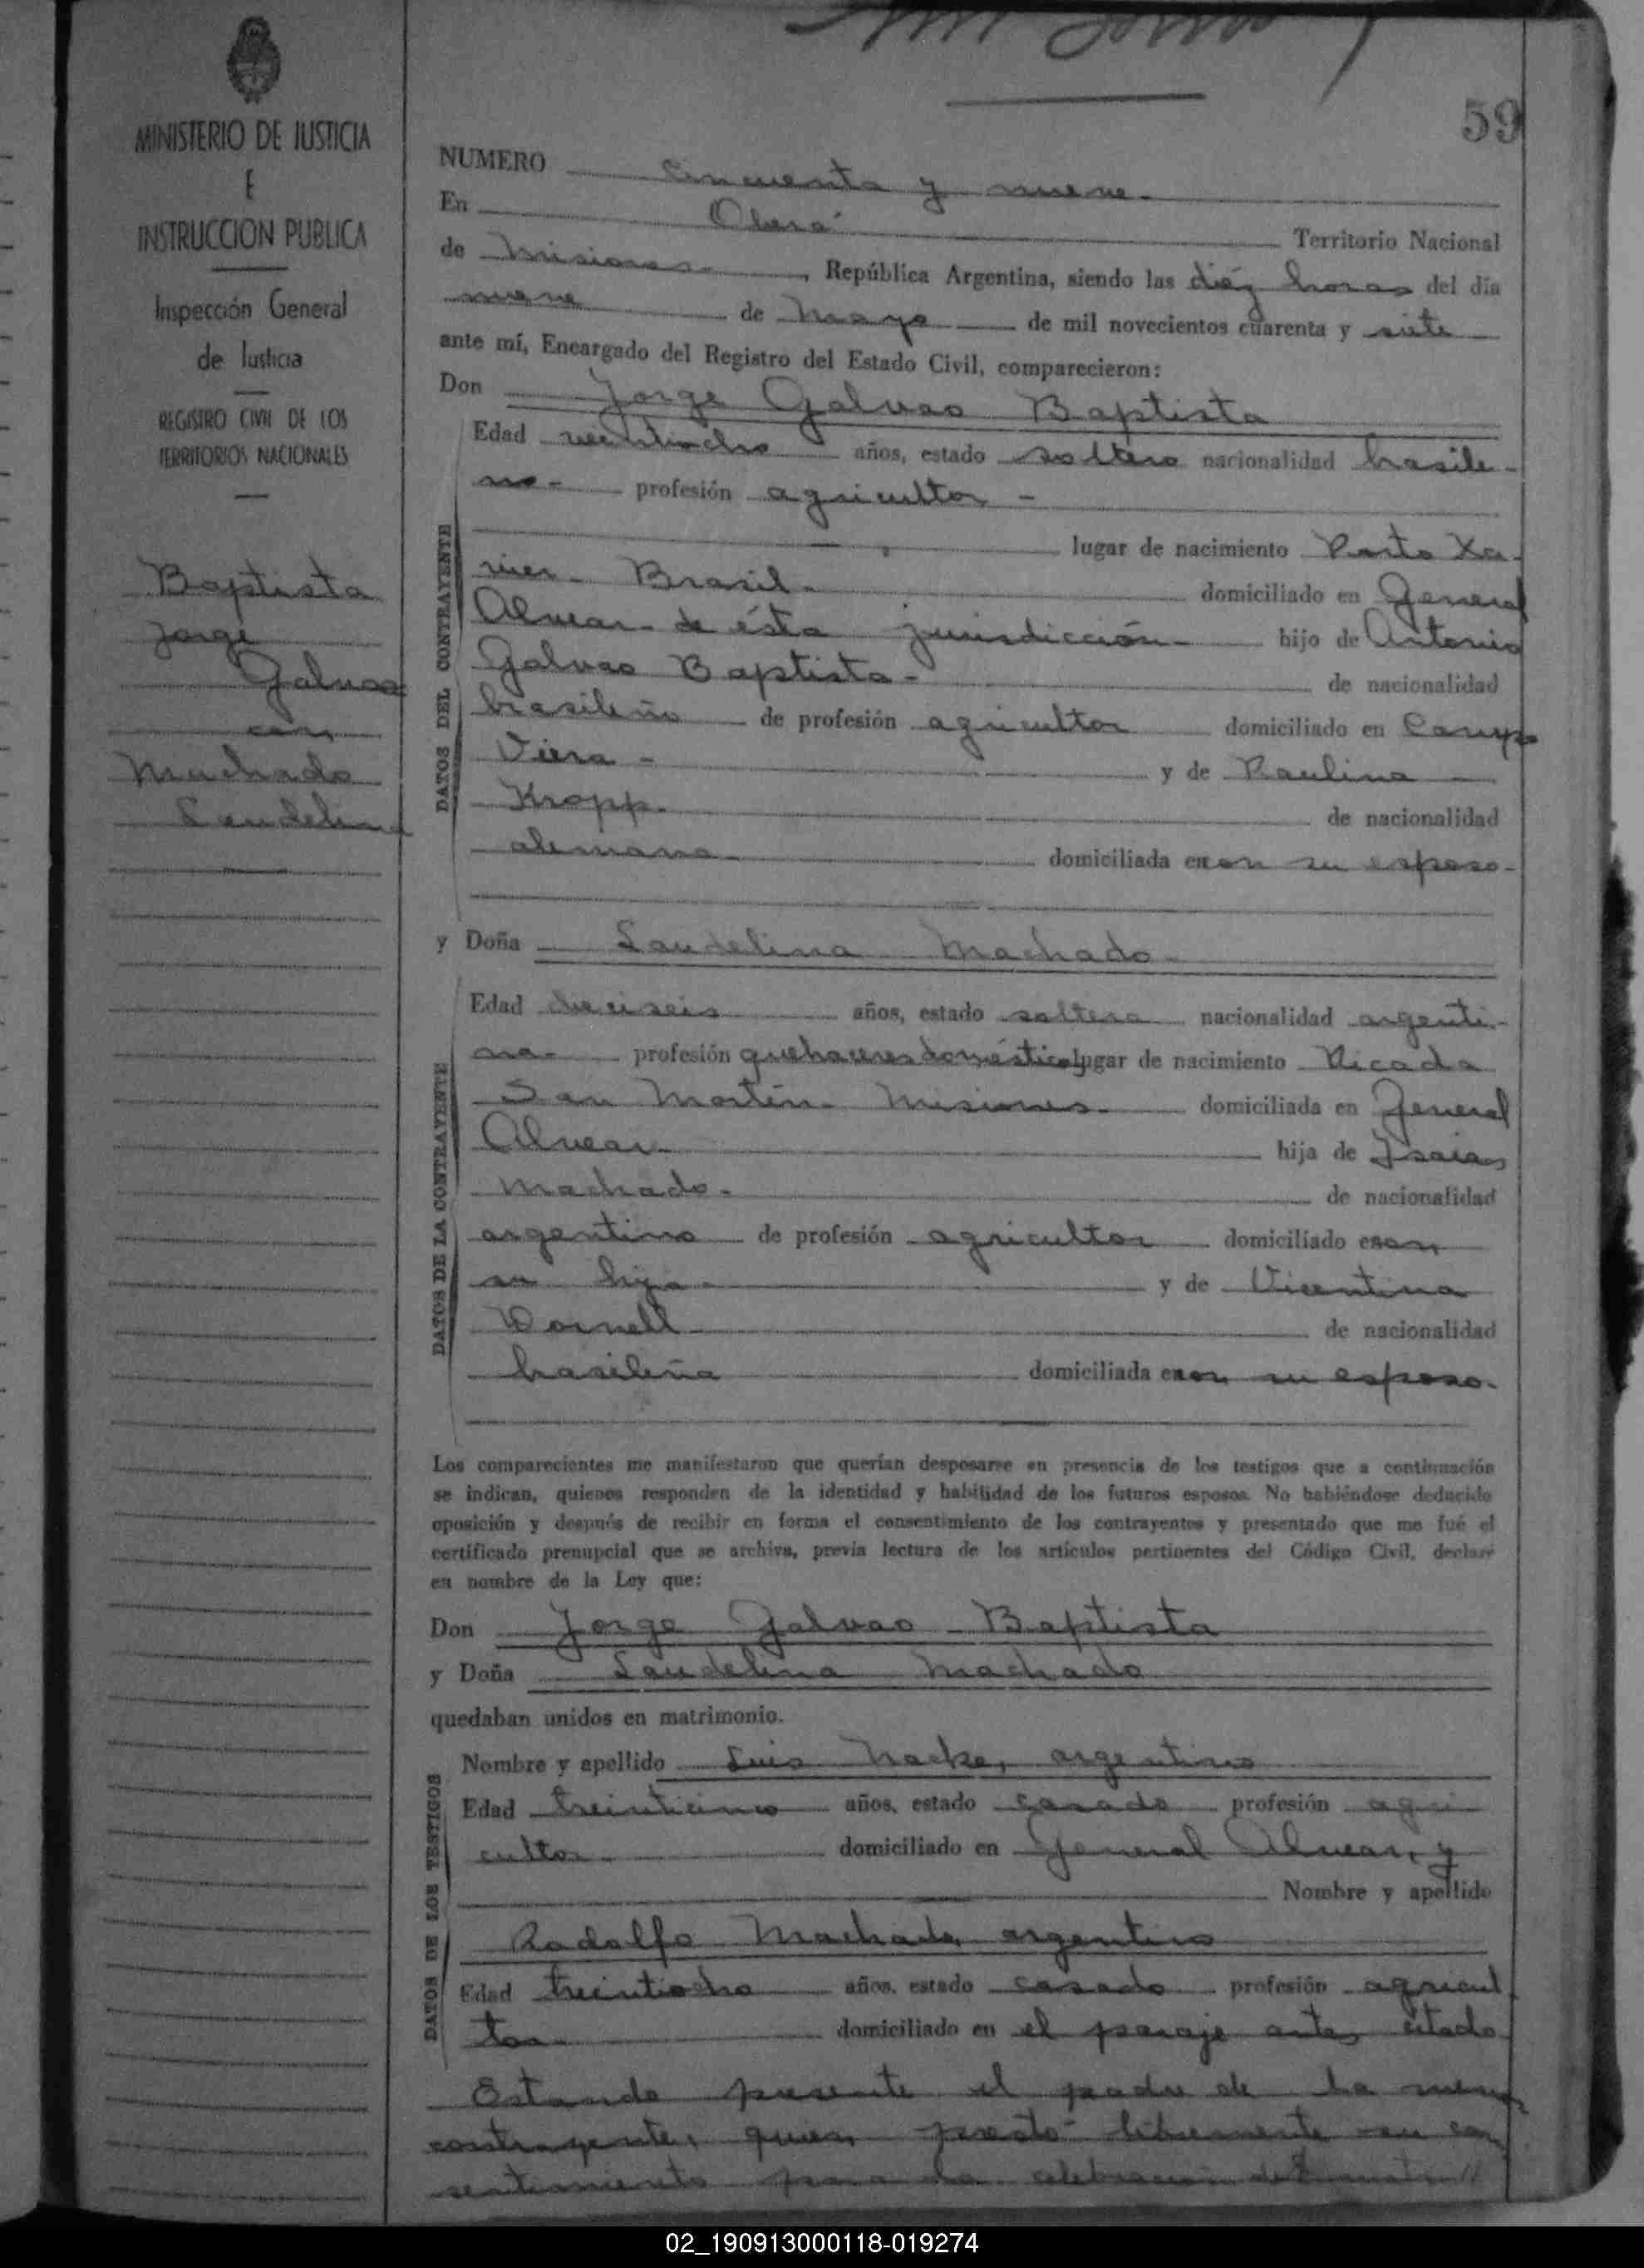 59
MINISTERIO DE JUSTICIA
E
INSTRUCCION PUBLICA
Inspección General
de Justicia
REGISTRO CIVIL DE LOS
TERRITORIOS NACIONALES
Baptista
Jorge
Galvao
con
Machado
Laudelina
NUMERO Cincuenta y nueve
En Oberá Territorio Nacional
de Misiones, República Argentina, siendo las diéz horas del día
nueve de Mayo de mil novecientos cuarenta y siete
ante mí, Encargado del Registro del Estado Civil, comparecieron:
Don Jorge Galvao Baptista
DATOS DEL CONTRAYENTE
Edad veintiocho años, estado soltero nacionalidad brasile-
no- profesión agricultor -
lugar de nacimiento Porto Xa-
vier- Brasil- domiciliado en General
Alvear- de ésta jurisdicción- hijo de Antonio
Galvao Baptista- de nacionalidad
brasileño de profesión agricultor domiciliado en Campo
Viera - y de Paulina
Kropp- de nacionalidad
alemana- domiciliada en con su esposo-
y Doña Laudelina Machado-
DATOS DE LA CONTRAYENTE
Edad dieciseis años, estado soltera nacionalidad argenti-
na- profesión quehaceres domésticos lugar de nacimiento Picada
San Martín- Misiones- domiciliada en General
Alvear- hija de Isaias
Machado- de nacionalidad
argentino de profesión agricultor domiciliado en con
su hija- y de Vicentina
Dornell de nacionalidad
brasileña domiciliada en con su esposo-
Los comparecientes me manifestaron que querían desposarse en presencia de los testigos que a continuación
se indican, quienes responden de la identidad y habilidad de los futuros esposos. No habiéndose deducido
oposición y después de recibir en forma el consentimiento de los contrayentes y presentado que me fué el
certificado prenupcial que se archiva, previa lectura de los artículos pertinentes del Código Civil, declaré
en nombre de la Ley que:
Don Jorge Galvao Baptista
y Doña Laudelina Machado
quedaban unidos en matrimonio.
DATOS DE LOS TESTIGOS
Nombre y apellido Luis argentino
Edad treinticinco años, estado casado profesión agri
cultor domiciliado en General Alvear, y
Nombre y apellido
Rodolfo Machado, argentino
Edad treintiocho años, estado casado profesión agricul
tor domiciliado en el paraje antes citado
Estando presente el padre de la menor
contrayente, quien prestó libremente su con
sentimiento para la celebracion
02_190913000118-019274